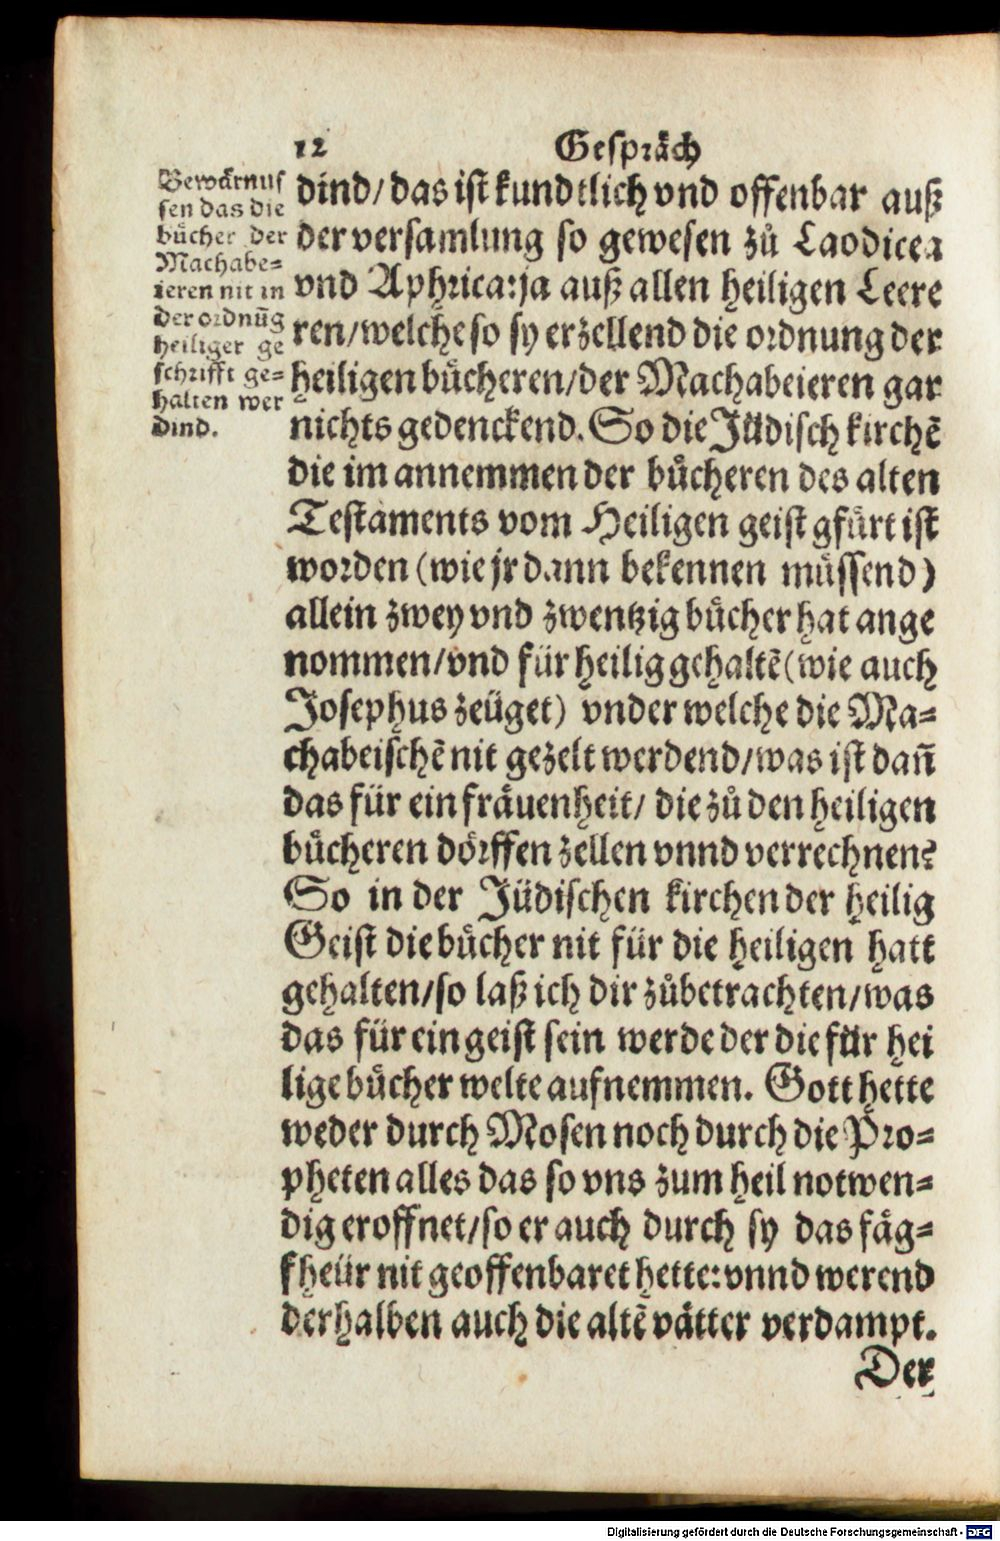 12 Gespräch
Bewärnus
sen das die
bücher der
Machabe=
ieren nit in
der ordnūg
heiliger ge
schrifft ge=
halten wer
dind.
dind/das ist kundtlich vnd offenbar auß
der versamlung so gewesen zů Laodicea
vnd Aphrica:ja auß allen heiligen Leere
ren/welche so sy erzellend die ordnung der
heiligen bůcheren/der Machabeieren gar
nichts gedenckend. So die Jüdisch kirchē
die im annemmen der bůcheren des alten
Testaments vom Heiligen geist gfürt ist
worden (wie jr dann bekennen müssend)
allein zwey vnd zwentzig bůcher hat ange
nommen/vnd für heilig gehaltē (wie auch
Josephus zeüget) vnder welche die Ma=
chabeischē nit gezelt werdend/was ist dañ
das für ein fräuenheit/ die zů den heiligen
bůcheren dörffen zellen vnnd verrechnen?
So in der Jüdischen kirchen der heilig
Geist die bůcher nit für die heiligen hatt
gehalten/so laß ich dir zůbetrachten/was
das für ein geist sein werde der die für hei
lige bůcher welte aufnemmen. Gott hette
weder durch Mosen noch durch die Pro=
pheten alles das so vns zum heil notwen=
dig eroffnet/so er auch durch sy das fäg=
fheür nit geoffenbaret hette: vnnd werend
derhalben auch die altē vätter verdampt.
Der
Digitalisierung gefördert durch die Deutsche Forschungsgemeinschaft - DFG